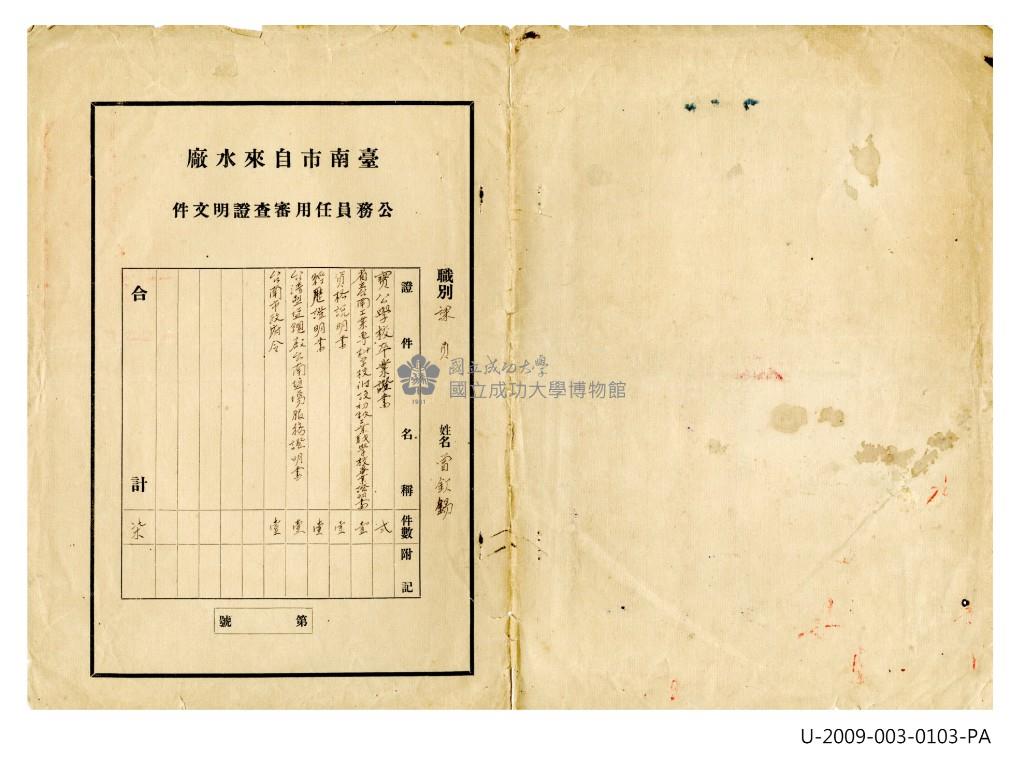 臺南市自來水廠
公務員任用審查證明文件
職別 課員 姓名 曾欽錫
證件名稱 件數 附記
寶公學校卒業證書 弍
省立台南工業專科學校附設初級工業職業學校畢業證明書 壹
資格說明書 壹
經歷證明書 壹
台南 服務證明書 壹
台南市政府令 壹
合計 柒
第 號
國立成功大學
國立成功大學博物館
1931
U-2009-003-0103-PA